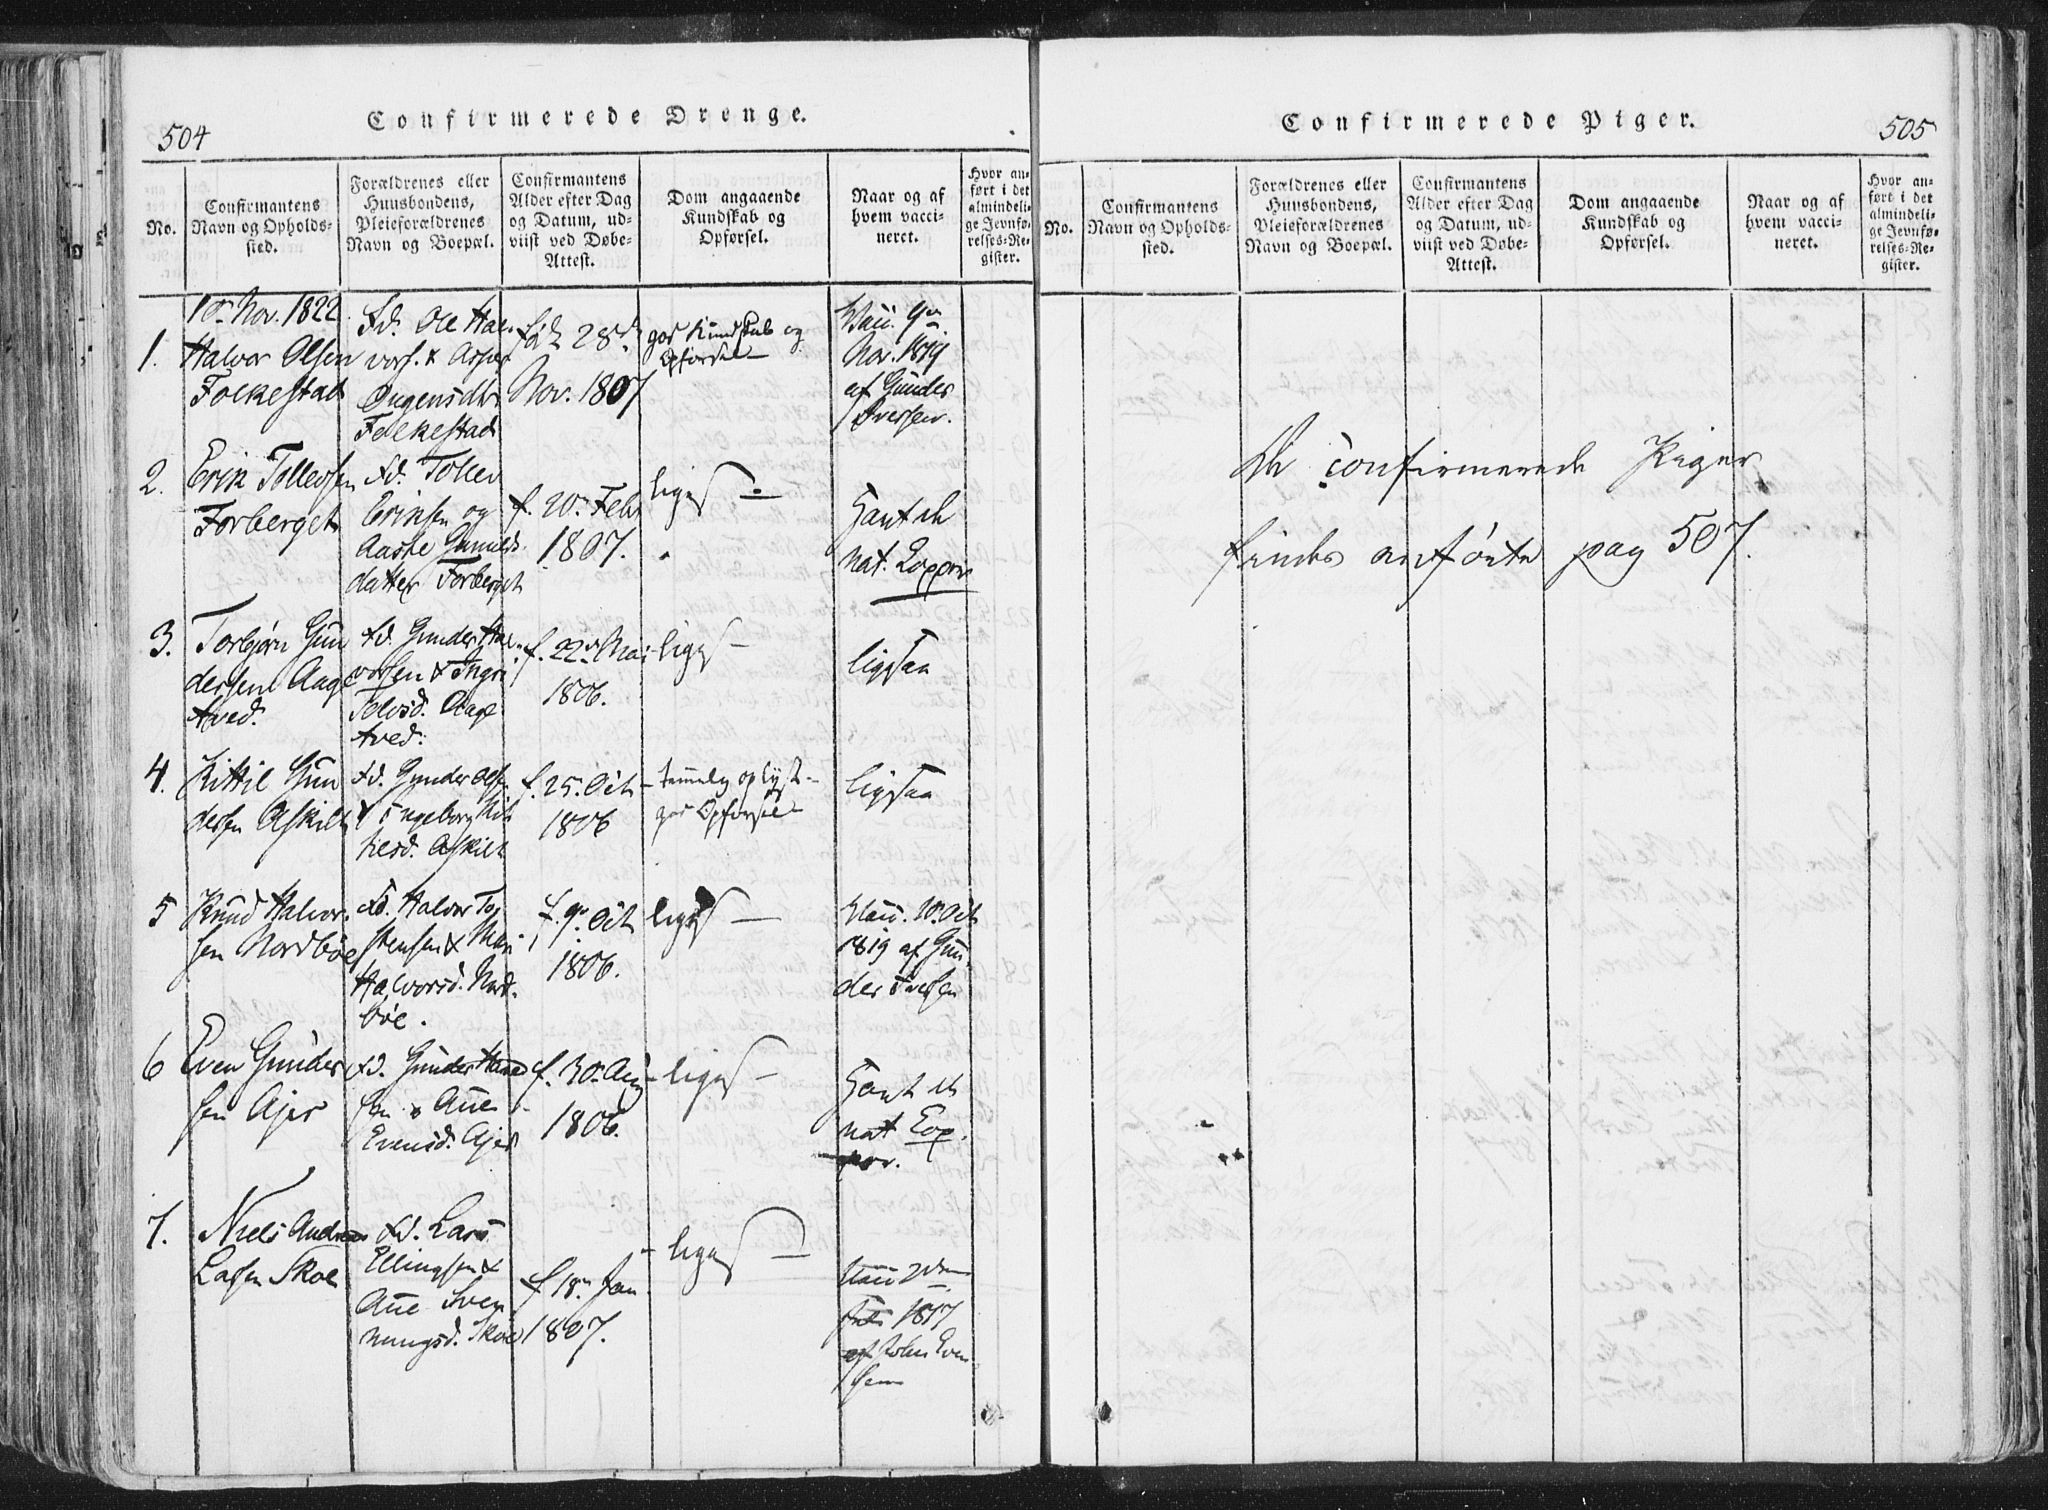 504
Confirmerede Drenge.
No.
Confirmantens Navn og Opholds-sted.
Forældrenes eller Huusbondens, Pleieforældrenes Navn og Boepæl.
Confirmantens Alder efter Dag og Datum, ud-viist ved Døbe-Attest.
Dom angaaende Kundskab og Opførsel.
Naar og af hvem vacci-neret.
Hvor an-ført i det almindeli-ge Jevnfø-relses-Re-gister.
10. Nov. 1822
1.
Halvor Olsen
Folkestad
Fd. Ole Hal-
vors. & Asper
Ougensdtr
Folkestad
Fød 28d
Nov. 1807
god Kundskab og
Opførsel
Vacc. 9de
Nov. 1819
af Gunder
Iversen.
2.
Erik Tollevsen
Forberget
Fd. Tollev
Eriksen og
Aaste Gunulds
datter Forberget
f. 20. Feb
1807.
liges
Havt de
nat. Kopper
3.
Torbjørn Gun
dersen Aage
tved.
Fd. Gunder Hal-
vorsen & Ingri
Tolvsd. Aage
tved.
f. 22d Mai
1806.
liges
ligesaa
4.
Kittil Gun
dersen Askilt
Fd. Gunder Ols.
& Ingeborg Kit
tilsd. Askilt
f. 25. Oct
1806
temmelig oplyst
god Opførsel
ligesaa
5
Knud Halvor-
sen Nordbøe
Fd. Halvor To
stensen & Mari
Halvorsd. Nord-
bøe.
f. 9. Oct
1806.
liges
Vacc. 10. Oct
1819 af Gun-
der Iversen
6
Even Gunder
sen Ajer
Fd. Gunder
sen & Anne
Evensd. Ajer
f. 30. Aug
1806.
liges
Havt de
nat. Kop-
per.
7.
Niels Andreas
Larsen Skoe
Fd. Lars
Ellingsen &
Anne Sven
nungsd. Skoe
f. 18. Jan.
1807.
liges
Vacc 2den
1817
af John Even
sen
Confirmerede Piger.
505
No.
Confirmantens Navn og Opholds-sted.
Forældrenes eller Huusbondens, Pleieforældrenes Navn og Boepæl.
Confirmantens Alder efter Dag og Datum, ud-viist ved Døbe-Attest.
Dom angaaende Kundskab og Opførsel.
Naar og af hvem vacci-neret.
Hvor an-ført i det almindeli-ge Jevnfø-relses-Re-gister.
De confirmerede Piger
findes anførte pag 507.